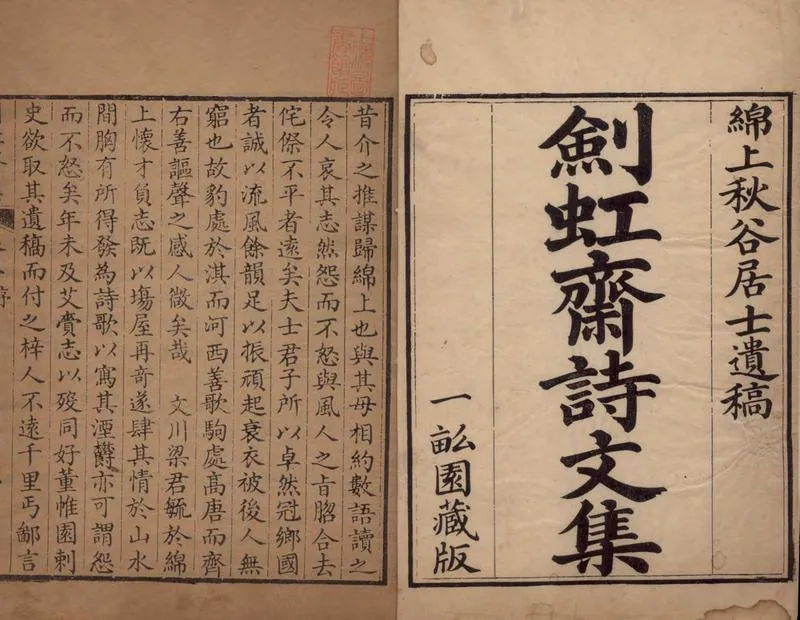 綿上秋谷居士遺稿
劍虹齋詩文集
一畆園藏版
昔介之推謀歸綿上也與其母相約數語讀之
令人哀其志然怨而不怒與風人之旨脗合去
侘傺不平者遠矣夫士君子所以卓然冠鄉國
者誠以流風餘韻足以振頑起衰衣被後人無
窮也故豹處於淇而河西善歌駒處髙唐而齊
右善謳聲之感人微矣哉　文川梁君毓於綿
上懷才負志既以塲屋再奇遂肆其情於山水
間胸有所得發為詩歌以寫其湮鬱亦可謂怨
而不怒矣年未及艾賫志以歿同好董帷園刺
史欲取其遺稿而付之梓人不遠千里丐鄙言